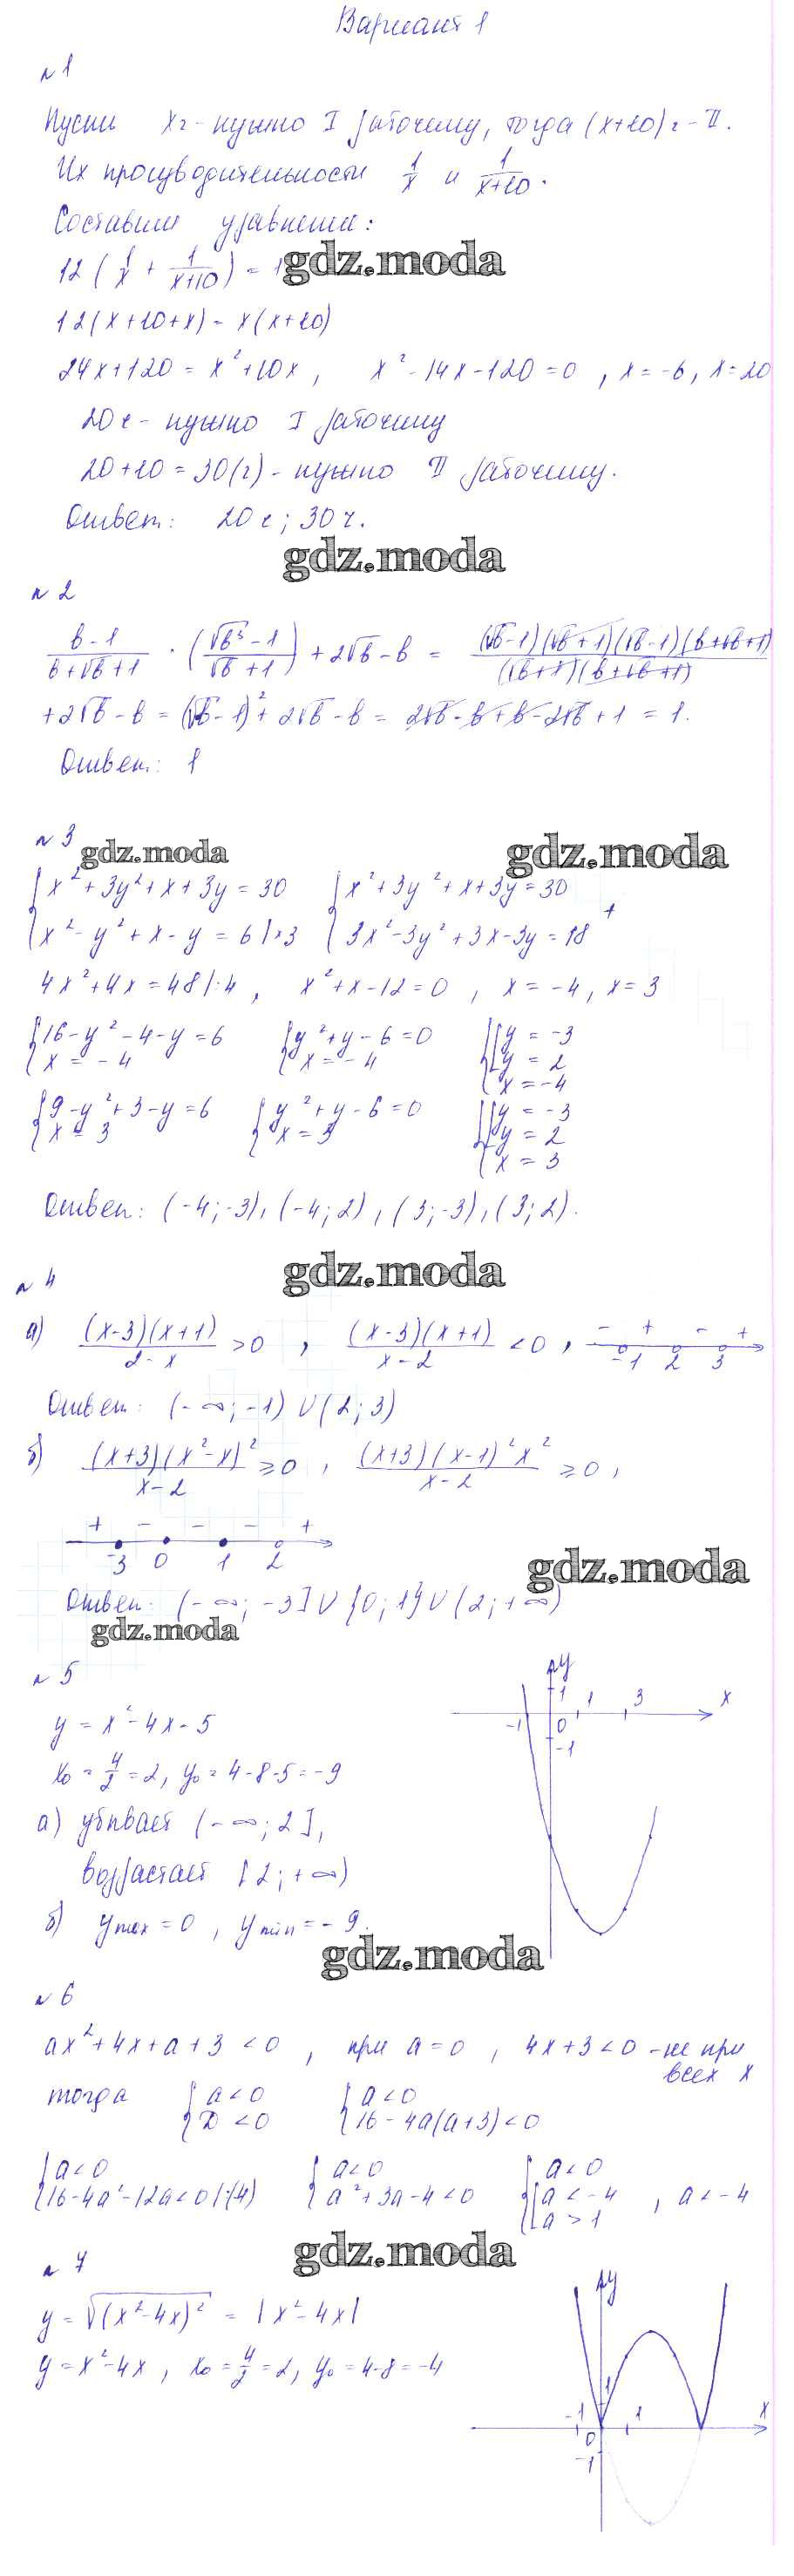 Вариант 1
№1
Пусть x ч - нужно I рабочему, тогда (x+10) ч - II.
Их производительности 1/x и 1/(x+10).
Составим уравнение:
12(1/x + 1/(x+10)) = 1
gdz.moda
12(x+10+x) = x(x+10)
24x+120 = x²+10x, x²-14x-120=0, x=-6, x=20
20 ч - нужно I рабочему
20+10=30(ч) - нужно II рабочему.
Ответ: 20 ч; 30 ч.
gdz.moda
№2
(b-1)/(b+√b+1) · ((√b³-1)/(√b+1)) + 2√b - b = (√b-1)(√b+1)(√b-1)(b+√b+1)/((√b+1)(b+√b+1))
+2√b - b = (√b-1)² + 2√b - b = 2√b - b + b - 2√b + 1 = 1.
Ответ: 1
№3
gdz.moda gdz.moda
{x²+3y²+x+3y=30 {x²+3y²+x+3y=30
{x²-y²+x-y=6 |×3 {3x²-3y²+3x-3y=18 +
4x²+4x=48 |:4, x²+x-12=0, x=-4, x=3
{16-y²-4-y=6 {y²+y-6=0 {[y=-3
{x=-4 {x=-4 {[y=2
{x=-4
{9-y²+3-y=6 {y²+y-6=0 {[y=-3
{x=3 {x=3 {[y=2
{x=3
Ответ: (-4;-3), (-4;2), (3;-3), (3;2).
gdz.moda
№4
а) (x-3)(x+1)/(2-x) >0, (x-3)(x+1)/(x-2) <0,
- + - +
-1 2 3
Ответ: (-∞;-1)∪(2;3)
б) (x+3)(x²-x)²/(x-2) ≥0, (x+3)(x-1)²x²/(x-2) ≥0,
+ - - - +
-3 0 1 2
gdz.moda
Ответ: (-∞;-3]∪{0;1}∪(2;+∞)
gdz.moda
№5
y = x²-4x-5
x₀ = 4/2 = 2, y₀ = 4-8-5 = -9
а) убывает (-∞;2],
возрастает [2;+∞)
б) y max = 0, y min = -9.
y
1 1 3 x
-1 0
-1
gdz.moda
№6
ax²+4x+a+3<0, при a=0, 4x+3<0 - не при
всех x
тогда {a<0 {a<0
{D<0 {16-4a(a+3)<0
{a<0 {a<0 {a<0
{16-4a²-12a<0 |:(-4) {a²+3a-4<0 {[a<-4 , a<-4
{[a>1
gdz.moda
№7
y = √((x²-4x)²) = |x²-4x|
y = x²-4x, x₀ = 4/2 = 2, y₀ = 4-8 = -4
y
1
-1 1 x
0
-1